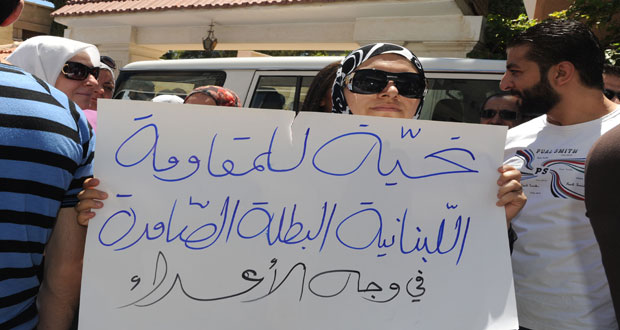 تحيّة للمقاومة
اللّبنانية البطلة الصّامدة
في وجه الأعداء
PS